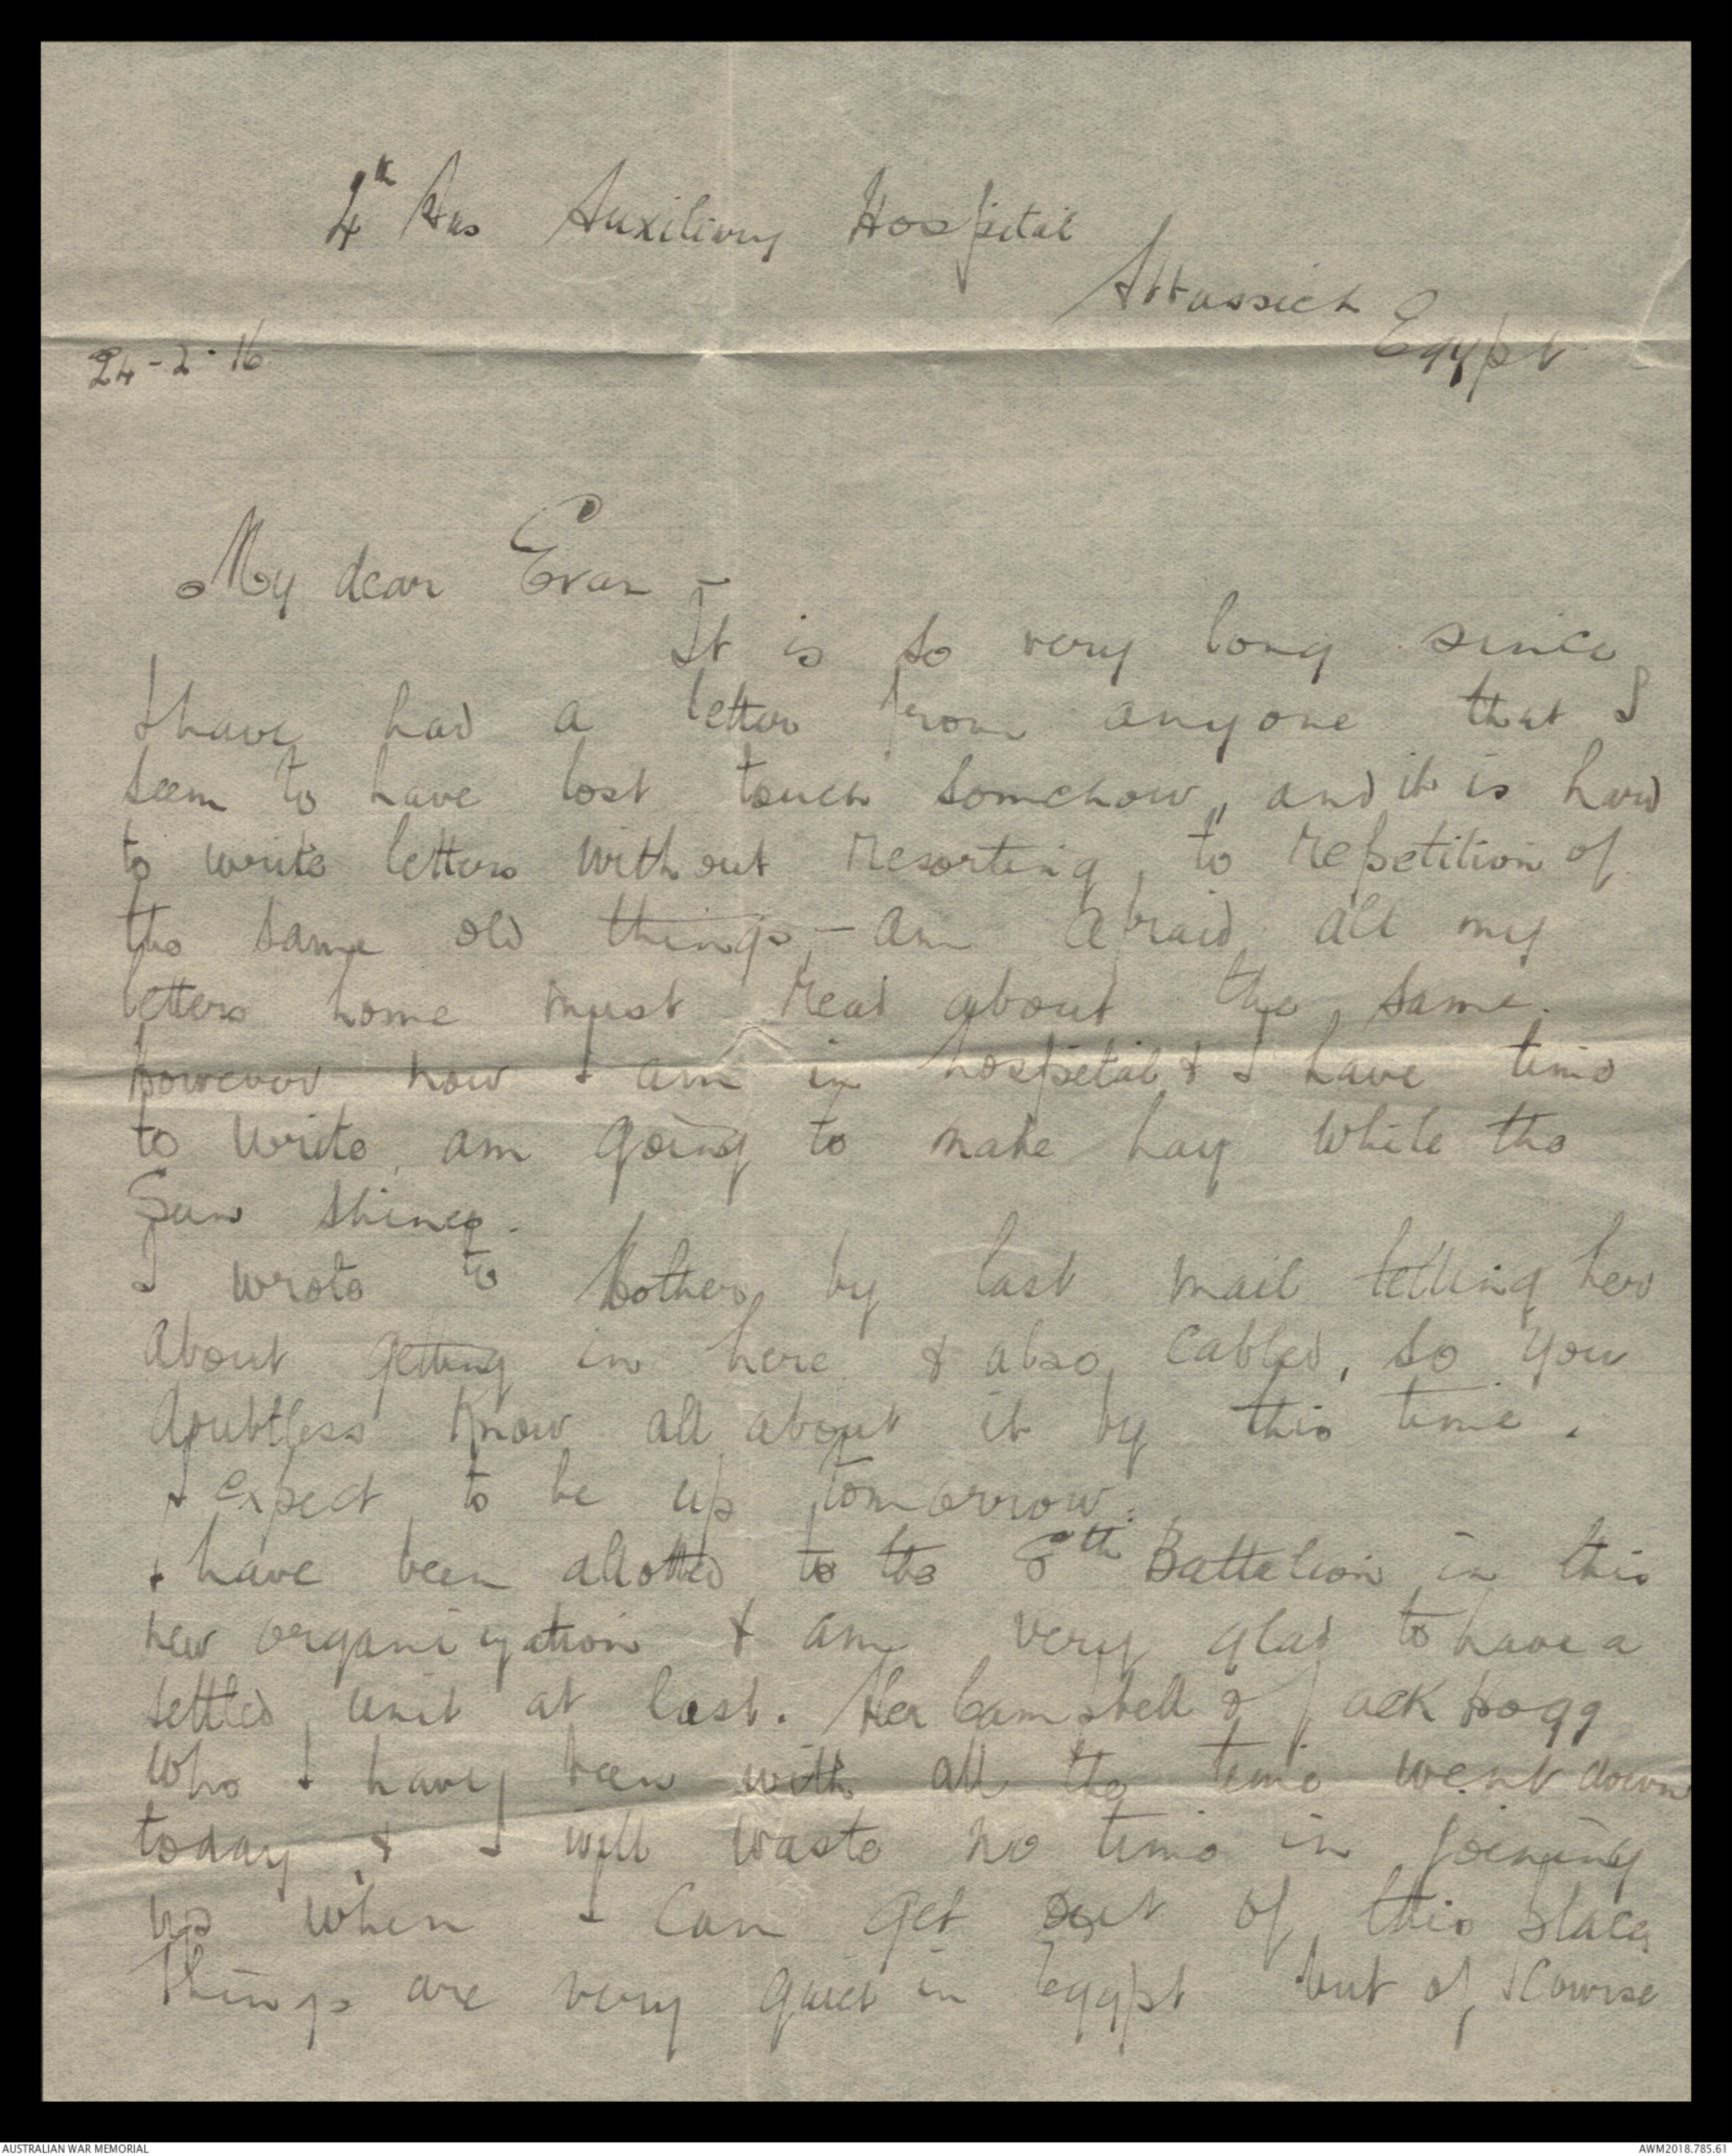 4th Aus Auxiliary Hospital
Abbassieh
Egypt
24-2-16
My dear Evan -
It is so very long since
I have had a letter from anyone that I
seem to have lost touch somehow, and it is hard
to write letters without resorting to repetition of
the same old things - am afraid all my
letters home must read about the same.
However now I am in hospital & I have time
to write, am going to make hay while the
Sun shines.
I wrote to Mother by last mail telling her
about getting in here & also cabled, so you
doubtless know all about it by this time.
I expect to be up tomorrow.
I have been allotted to the 8th Battalion in this
new organization & am very glad to have a
settled unit at last. Campbell & Jack Hogg
who I have been with all the time went down
today & I will waste no time in joining
up when I can get out of this place
Things are very quiet in Egypt but of course
AUSTRALIAN WAR MEMORIAL
AWM2018.785.61